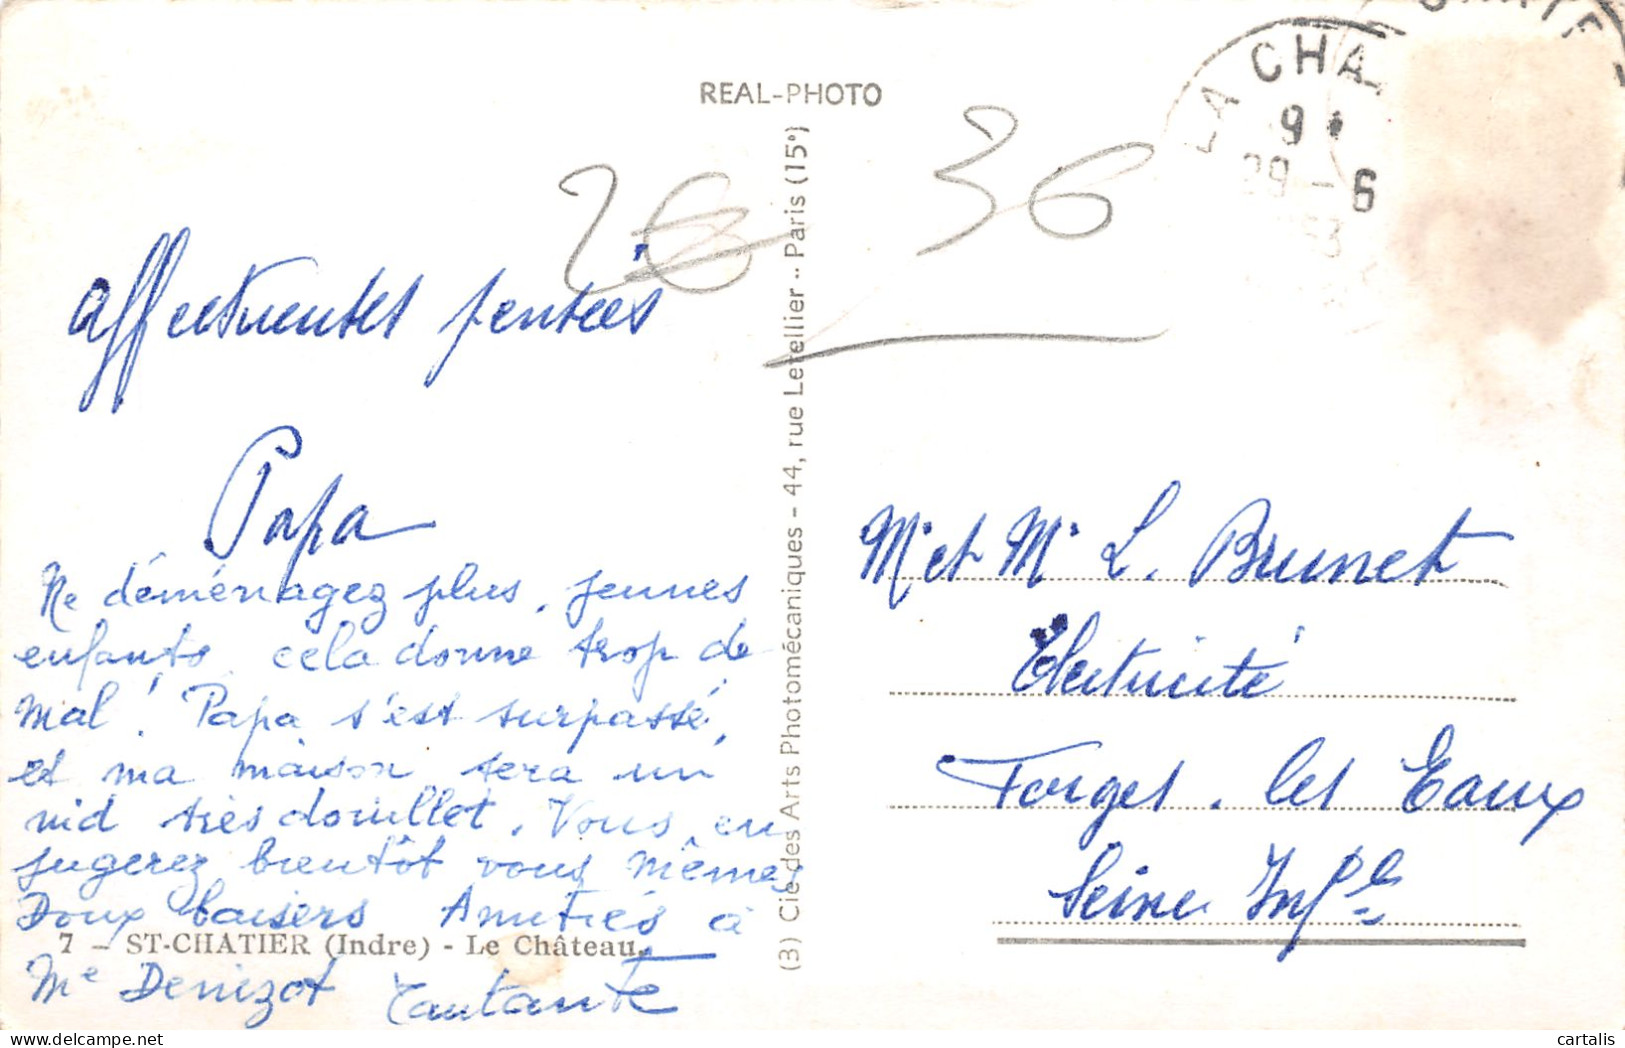 REAL-PHOTO
LA CHA
9
29 - 6
26
36
affectueuses pensées
Papa
Ne déménagez plus, jeunes
enfants, cela donne trop de
mal! Papa s'est surpassé,
et ma maison sera un
nid très douillet. Vous en
jugerez bientôt vous mêmes
Doux baisers Amitiés à
7 - ST-CHATIER (Indre) - Le Château.
Me Denizot Tantante
(3) Cie des Arts Photomécaniques - 44, rue Letellier - Paris (15e)
Mr et Me L. Brunet
Electricité
Forges. les Eaux
Seine Infre
cartalis